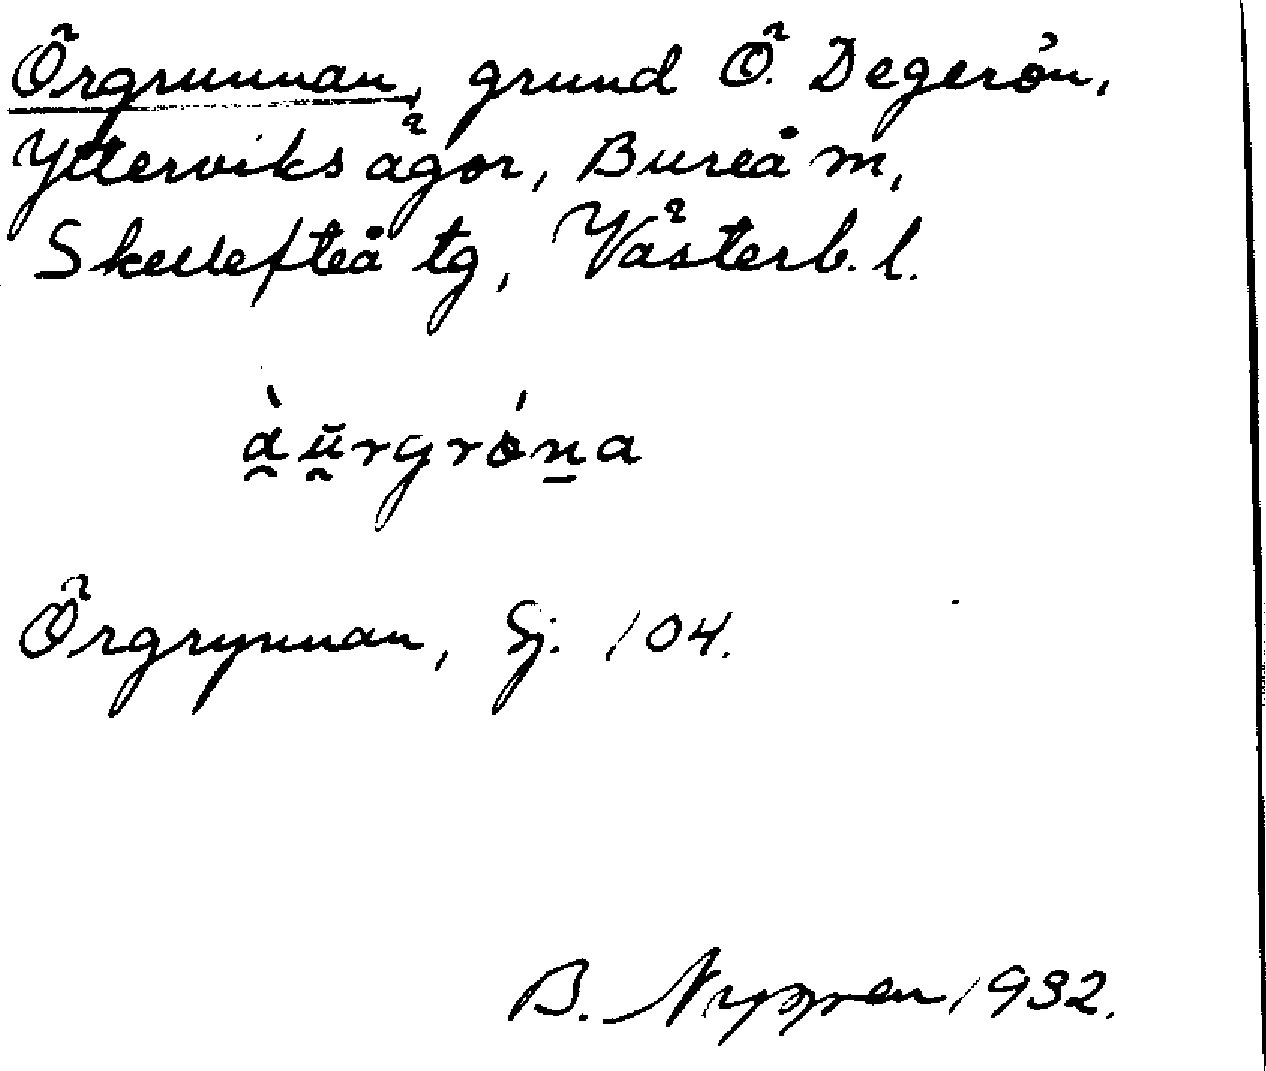 Örgrunnan, grund Ö. Degerön,
Ytterviks ägor, Bureå m,
Skellefteå tg, Västerb. l.
a̯ŭ̯rgróṉa
Örgrynnan, Sj. 104.
B. 1932.